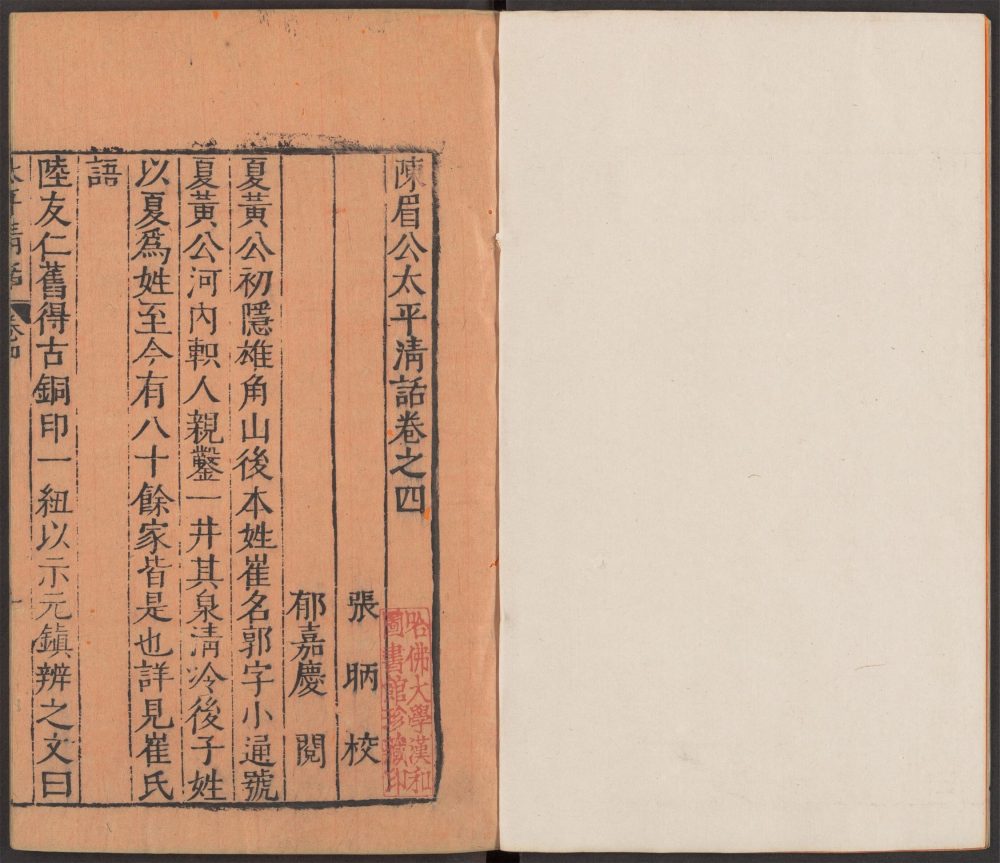 陳眉公太平清話卷之四
張昞校
郁嘉慶閱
夏黃公初隱雄角山後本姓崔名郭字小通號
夏黃公河內軹人親鑿一井其泉清冷後子姓
以夏爲姓至今有八十餘家皆是也詳見崔氏
語
陸友仁舊得古銅印一紐以示元鎮辨之文曰
太平清話 卷四 一
哈佛大學漢和
圖書館珍藏印